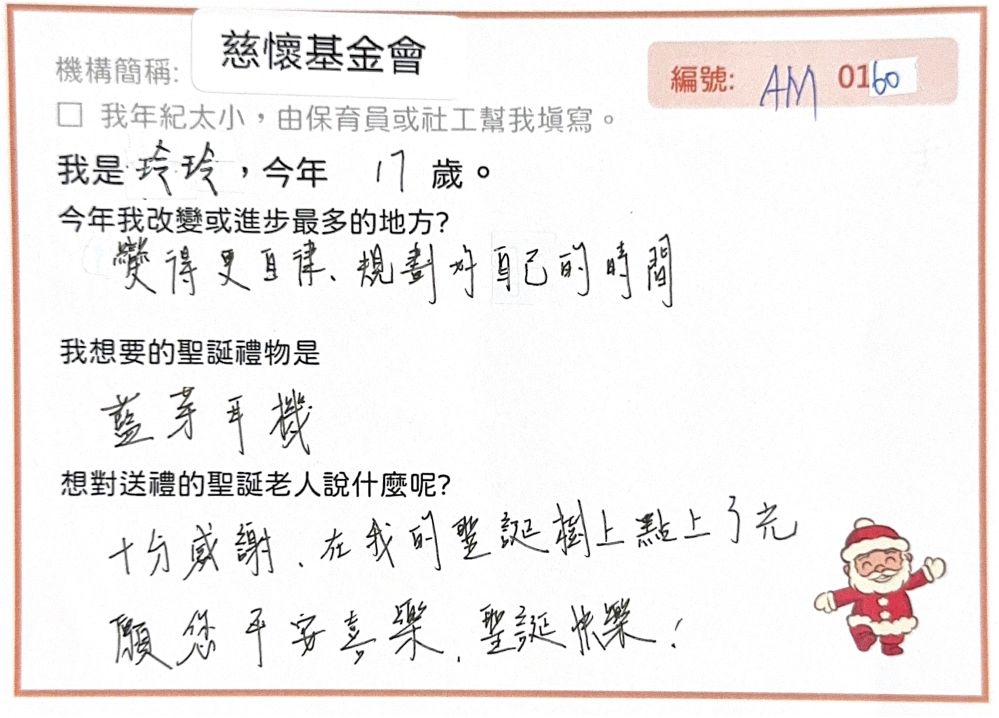 機構簡稱: 慈懷基金會
編號: AM 0160
□ 我年紀太小，由保育員或社工幫我填寫。
我是 玲玲，今年 17 歲。
今年我改變或進步最多的地方?
變得更自律、規劃好自己的時間
我想要的聖誕禮物是
藍芽耳機
想對送禮的聖誕老人說什麼呢?
十分感謝、在我的聖誕樹上點上了光
願您平安喜樂、聖誕快樂!